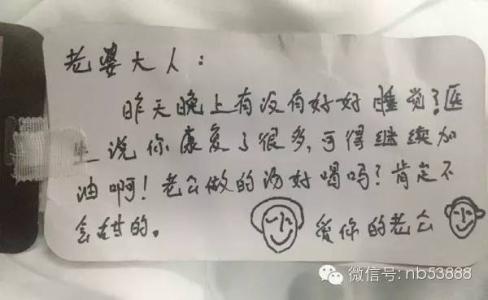 老婆大人：
昨天晚上有没有好好睡觉？医
生说你康复了很多，可得继续加
油啊！老公做的汤好喝吗？肯定不
会的。
爱你的老公
微信号: nb53888